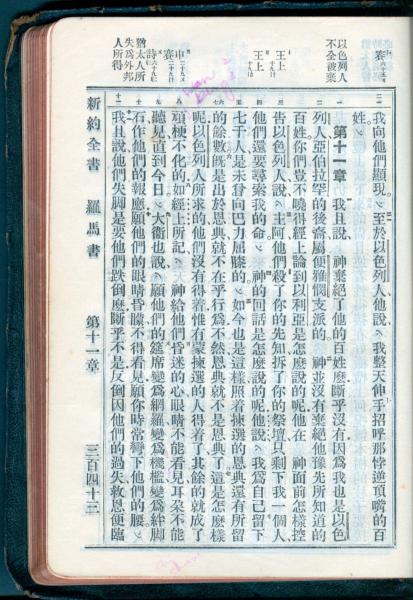 以色列人
不全被棄
賽六十五
王上十九
王上十九
申二十九
賽二十九
詩六十九
猶太人所
失爲外邦
人所得
我向他們顯現。至於以色列人他說、我整天伸手招呼那悖逆頂嘴的百
姓。
第十一章 我且說、 神棄絕了他的百姓麼斷乎沒有因爲我也是以色
列人亞伯拉罕的後裔屬便雅憫支派的。 神並沒有棄絕他豫先所知道的
百姓你們豈不曉得經上論到以利亞是怎麼說的呢他在 神面前怎樣控
告以色列人說、主阿他們殺了你的先知拆了你的祭壇只剩下我一個人
他們還要尋索我的命。 神的回話是怎麼說的呢他說、我爲自己留下
七千人是未曾向巴力屈膝的。如今也是這樣照着揀選的恩典還有所留
的餘數旣是出於恩典就不在乎行爲不然恩典就不是恩典了這是怎麼樣
呢以色列人所求的他們沒有得着惟有蒙揀選的人得着了其餘的就成了
頑梗不化的如經上所記、 神給他們昏迷的心眼睛不能看見耳朵不能
聽見直到今日。大衛也說、願他們的筵席變爲網羅變爲機檻變爲絆脚
石作他們的報應願他們的眼睛昏矇不得看見願你時常彎下他們的腰。
我且說他們失脚是要他們跌倒麼斷乎不是反倒因他們的過失救恩便臨
新約全書 羅馬書 第十一章 三百四十三